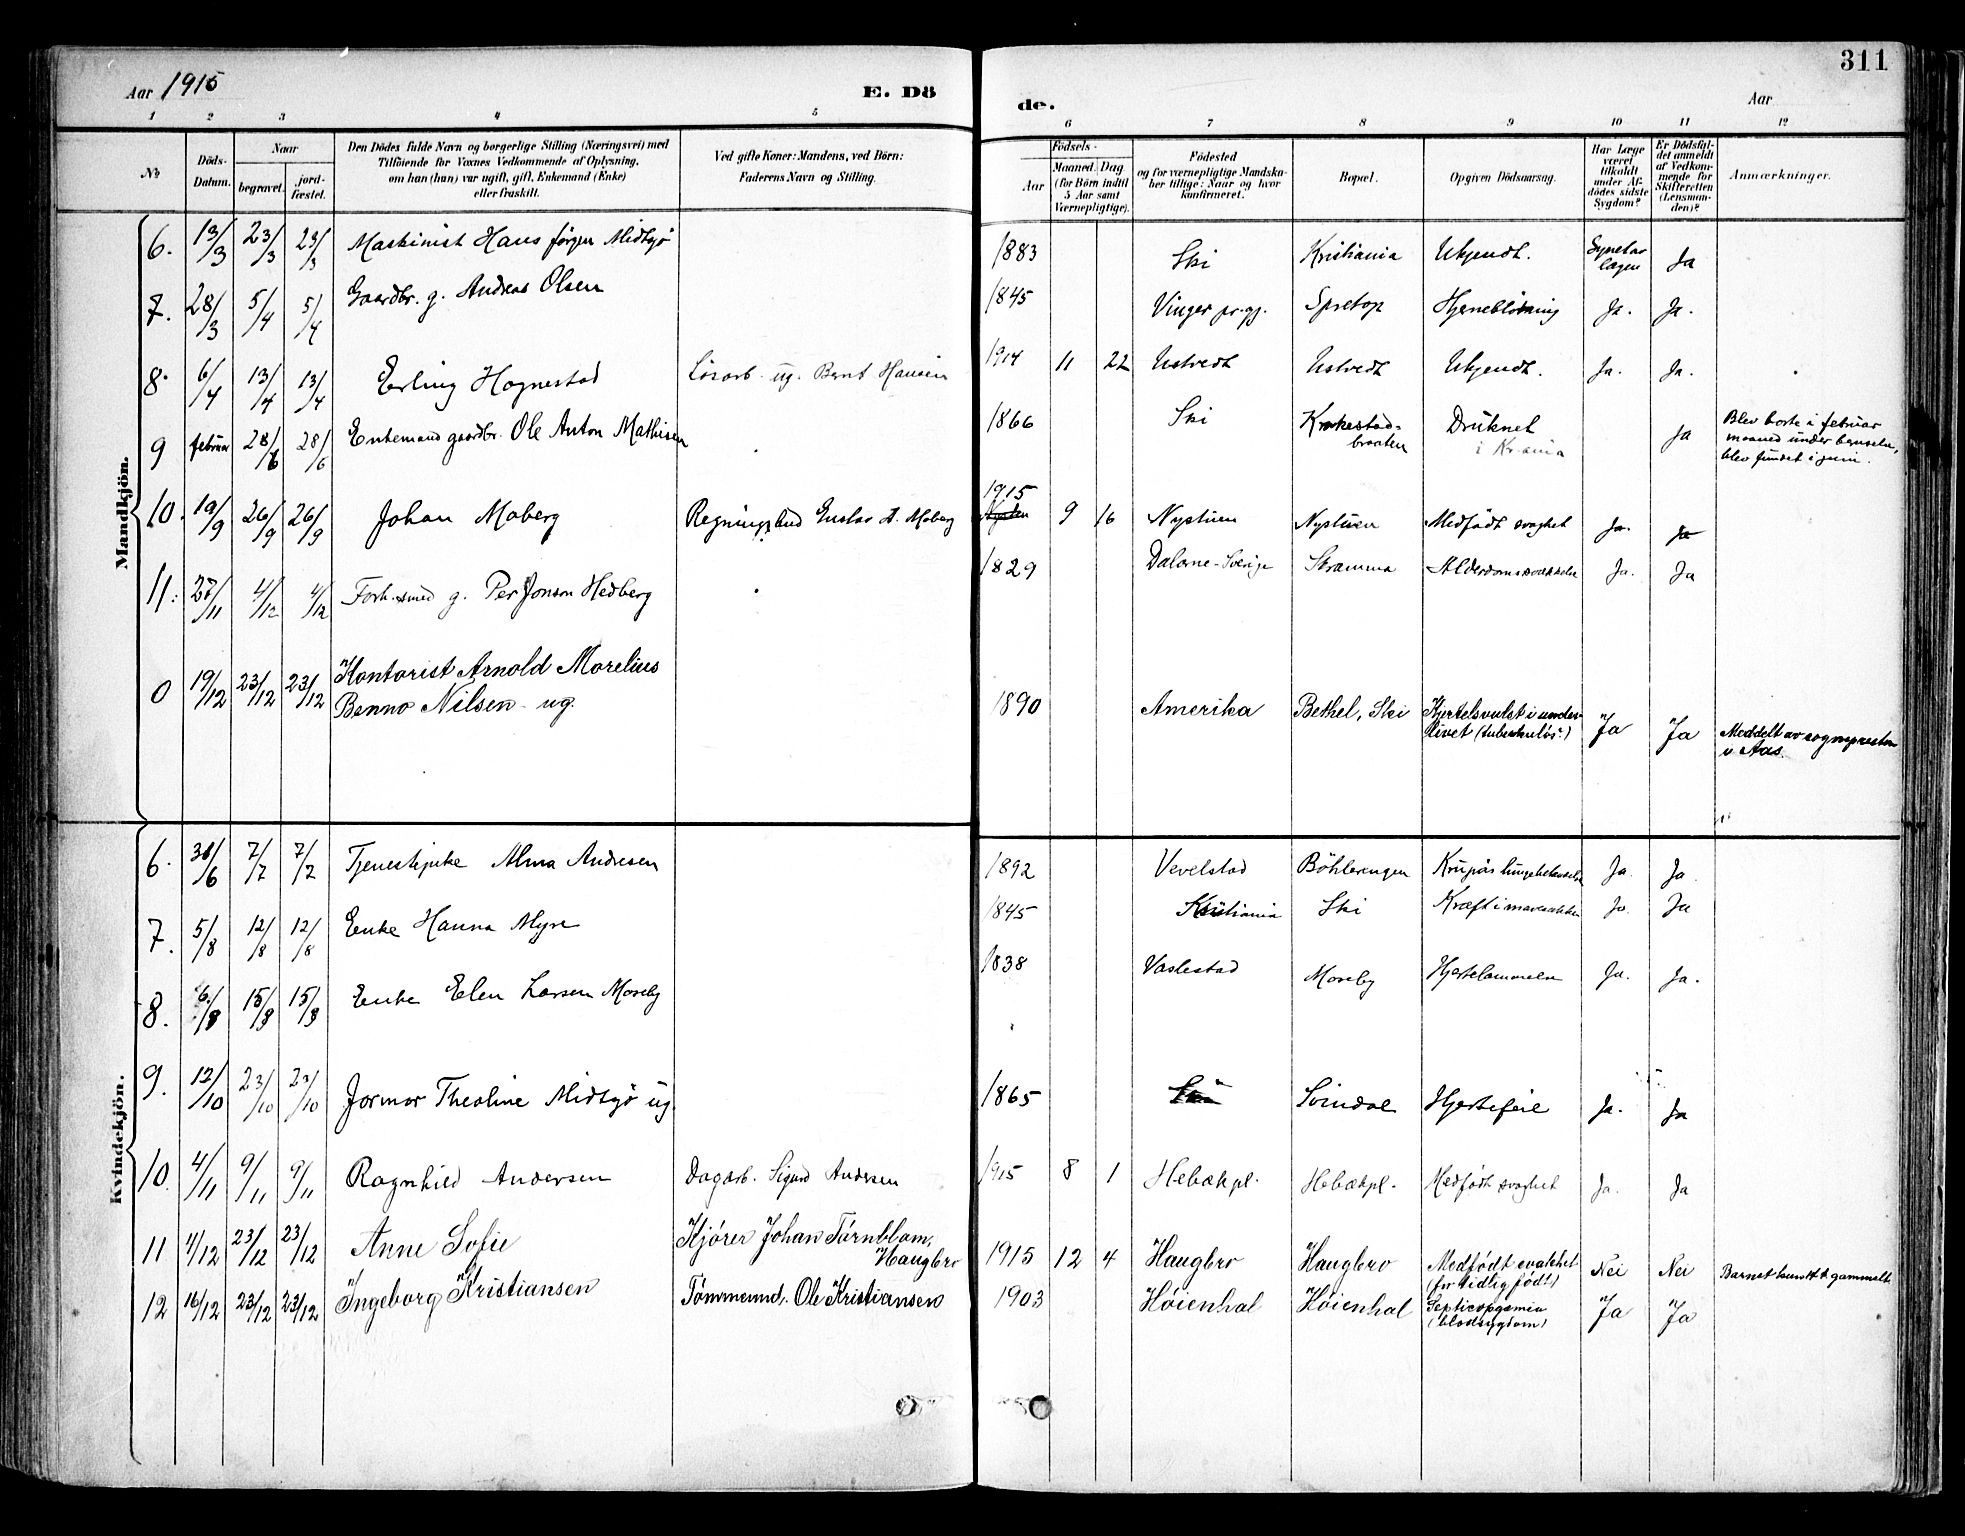 311
Aar 1915
E. Dö
de.
Aar
1 2 3 4 5
6 7 8 9 10 11 12
No
Döds-Datum.
Naar
begravet.
jord-fæstet.
Den Dödes fulde Navn og borgerlige Stilling (Næringsvei) med
Tilföiende for Voxnes Vedkommende af Oplysning,
om han (hun) var ugift, gift, Enkemand (Enke)
eller fraskilt.
Ved gifte Koner: Mandens, ved Börn:
Faderens Navn og Stilling.
Födsels-
Aar
Maaned. Dag
(for Börn indtil
5 Aar samt
Værnepligtige).
Födested
og for værnepligtige Mandska-
ber tillige: Naar og hvor
konfirmeret.
Bopæl.
Opgiven Dödsaarsag.
Har Læge
været
tilkaldt
under Af-
dödes sidste
Sygdom?
Er Dödsfal-
det anmeldt
af Vedkom-
mende for
Skifteretten
(Lensman-
den)?
Anmærkninger.
Mandkjön.
6. 13/3 23/3 23/3 Maskinist Hans Jørgen Midtsjø 1883 Ski Kristiania Ukjendt. Ja
7. 28/3 5/4 5/4 Gaardbr. g. Andreas Olsen 1845 Vinger pr.gj. Spretop Hjerneblødning Ja. Ja.
8. 6/4 13/4 13/4 Erling Hagnestad Løsarb. ug. Bernt Hansen 1914 11 22 Ustvedt Ustvedt Ukjendt. Ja. Ja.
9 februar 28/6 28/6 Enkemand gaardbr. Ole Anton Mathisen 1866 Ski Krakestad-
braaten Druknet
i Kr.ania Ja Blev borte i februar
maaned under
blev fundet i juni.
10. 19/9 26/9 26/9 Johan Moberg Gustav A. Moberg 1915 9 16 Nystuen Nystuen Medfødt svaghet Ja. Ja
11. 27/11 4/12 4/12 Forh. smed g. Per Jonson Hedberg 1829 Dalarne-Sverige Stramma Alderdomssvækkelse Ja. Ja
0 19/12 23/12 23/12 Kontorist Arnold Morelius
Benno Nilsen - ug. 1890 Amerika Bethel, Ski Kjertelsvulst i under-
livet (tuberkuløs?) Ja Ja Meddelt av sognepresten
i Aas.
Kvindekjön.
6. 30/6 7/7 7/7 Tjenestepike Alma Andresen 1892 Vevelstad Böhlerengen Krupøs lungebetændelse Ja. Ja.
7. 5/8 12/8 12/8 Enke Hanna Myre 1845 Kristiania Ski Kræft i mavesækken Ja. Ja
8. 6/8 15/8 15/8 Enke Elen Larsen Moreby 1838 Vaslestad Moreby Hjertelammelse Ja. Ja.
9. 12/10 23/10 23/10 Jormor Theoline Midtsjø ug. 1865 Ski Svindal Hjertefeil Ja. Ja
10. 4/11 9/11 9/11 Ragnhild Andersen Dagarb. Sigurd Andersen 1915 8 1 Hebækpl. Hebækpl. Medfødt svaghet Ja. Ja
11 4/12 23/12 23/12 Anne Sofie Kjører Johan Törnblom,
Haugbro 1915 12 4 Haugbro Haugbro Medfødt svakhet
(for tidlig født) Nei Nei Barnet kun 1 t gammelt
12 16/12 23/12 23/12 Ingeborg Kristiansen Tømmermd. Ole Kristiansen 1903 Høienhal Høienhal Septicopyæmia
(blodsygdom) Ja Ja